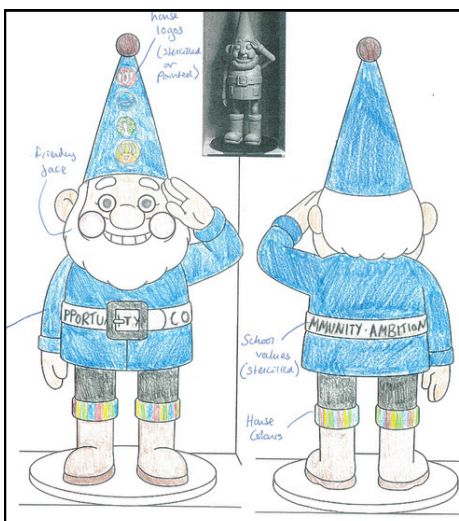 house
logos
(stencilled
or
painted)
friendly
face
PPORTUNITY
CO
MMUNITY·AMBITION
School
values
(stencilled)
House
Colours